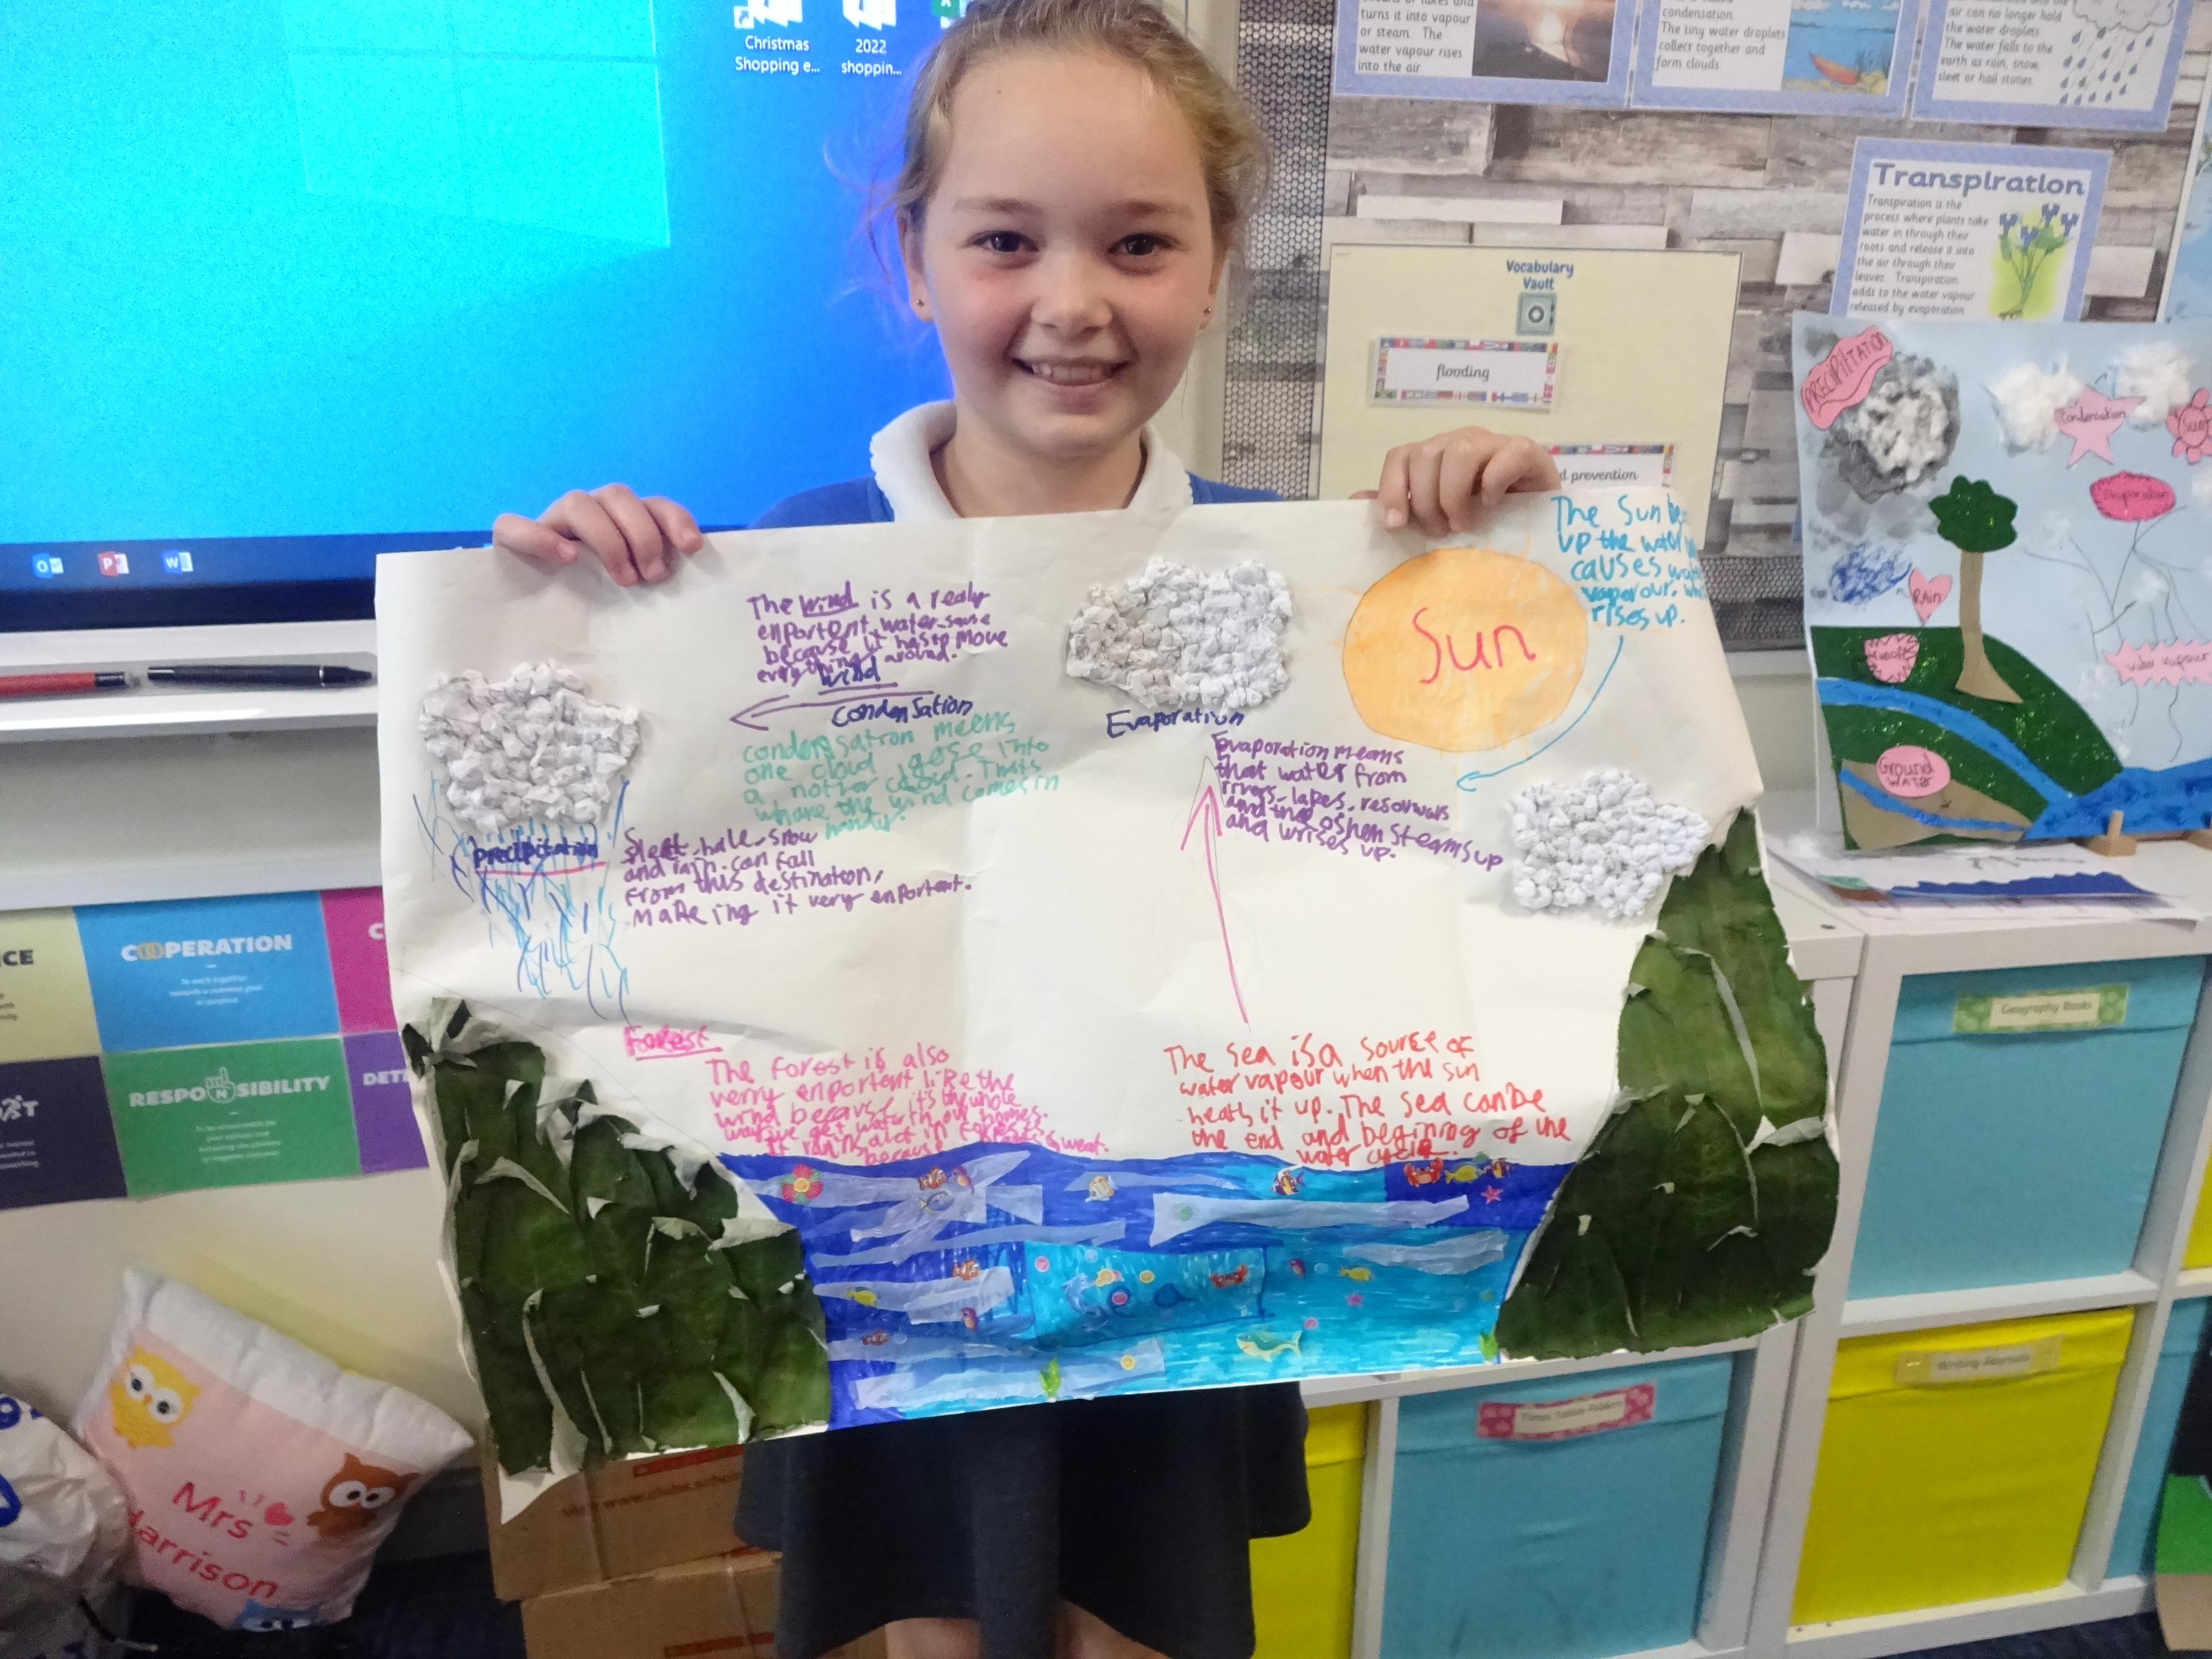 Christmas
Shopping e...
2022
shoppin...
turns it into vapour
or steam. The
water vapour rises
into the air
condensation
The tiny water droplets
collect together and
form clouds
air can no longer hold
the water droplets
The water falls to the
earth as rain, snow,
sleet or hail stones.
Transpiration
Transpiration is the
process where plants take
water in through their
roots and release it into
the air through their
leaves. Transpiration
adds to the water vapour
released by evaporation
Vocabulary
Vault
flooding
d prevention
PRECIPITATION
Condensation
Evaporation
RAIN
Runoff
water vapour
Ground
WATER
The wind is a realy
enportent water-
because it has to move
everything around.
Wind
Condensation
condensation meens
one cloud gose into
a nother cloud. Thats
where the wind comes in
Evaporation
Evaporation means
that water from
rivers, lakes,
and the steams up
and wrises up.
Sun
The Sun
up the water
causes
vapour,
rises up.
Precipitation
Sleet, hale, snow
and rain can fall
from this destination,
makeing it very enportent.
Forest
The forest is also
verry enportent like the
wind because it's the whole
way we get water in our homes.
it rains alot in forests
because sweat.
The sea is a source of
water vapour when the sun
heats it up. The sea can be
the end and begining of the
water cycle.
CE
COOPERATION
To work together
towards a common goal
or purpose.
C
RESPONSIBILITY
DET
Mrs
Harrison
Geography Books
Writing Journals
Times Table Folders